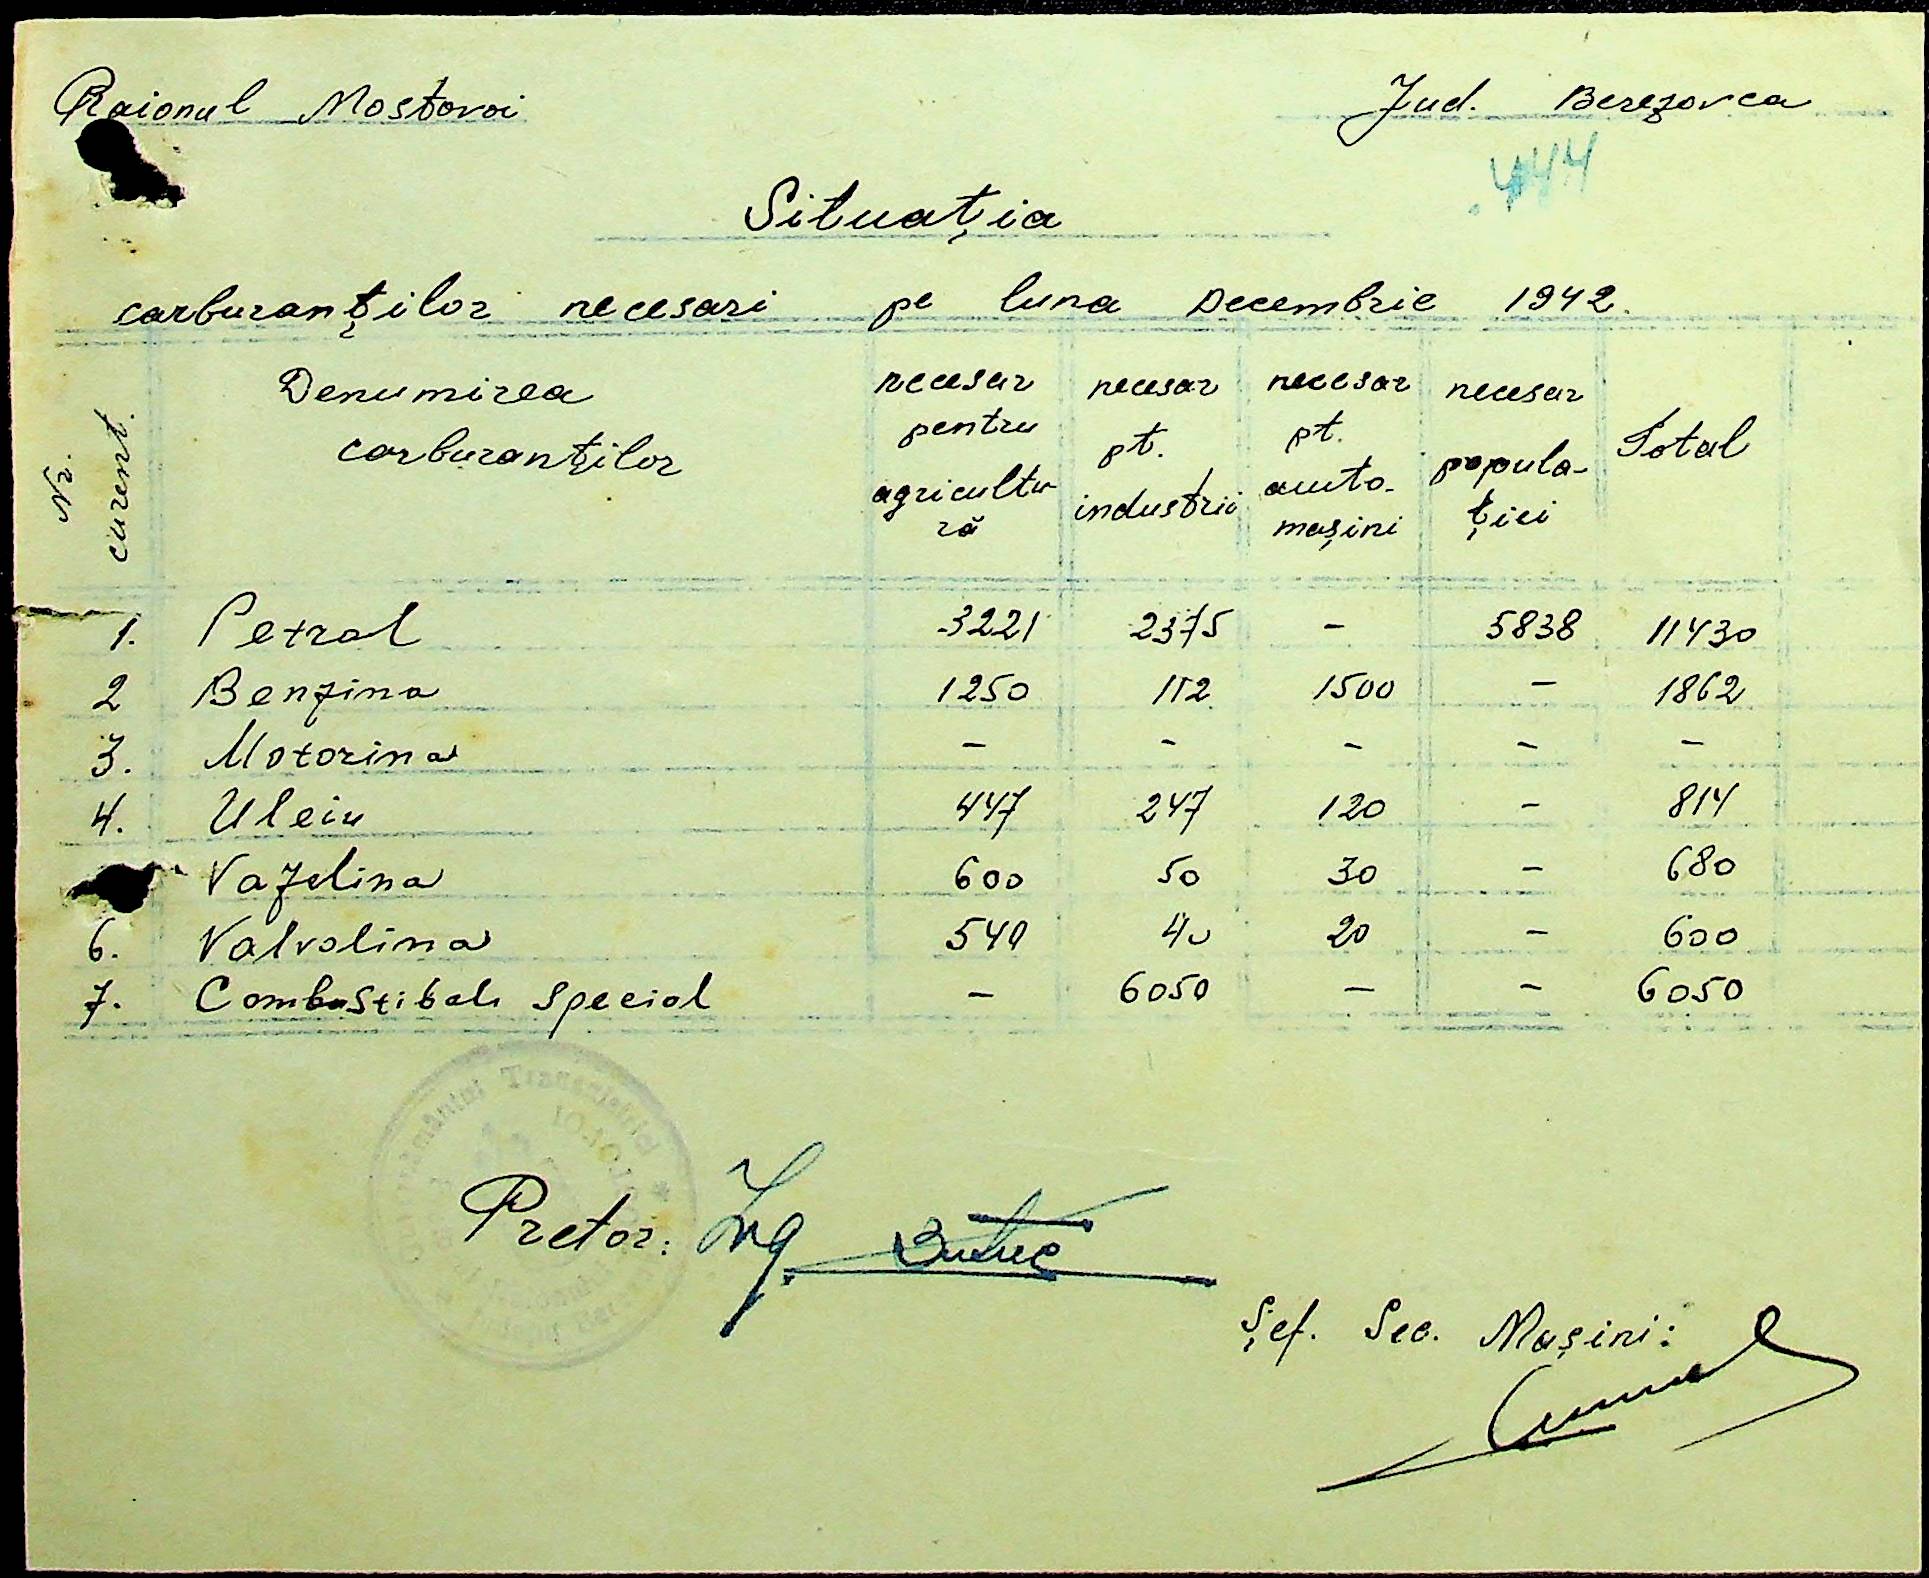 Raionul Mostovoi Jud. Berezovca
444
Situația
carburanților necesari pe luna Decembrie 1942.
Nr. curent. Denumirea carburanților necesar pentru agricultură necesar pt. industrii necesar pt. auto-mașini necesar popula-ției Total
1. Petrol 3221 2375 - 5838 11430
2 Benzina 1250 112 1500 - 1862
3. Motorina - - - - -
4. Uleiu 447 247 120 - 814
Vazelina 600 50 30 - 680
6. Valvolina 540 40 20 - 600
7. Combustibal special - 6050 - - 6050
Guvernământul Transnistriei
Pretor: Ing.
Șef. Sec. Mașini: